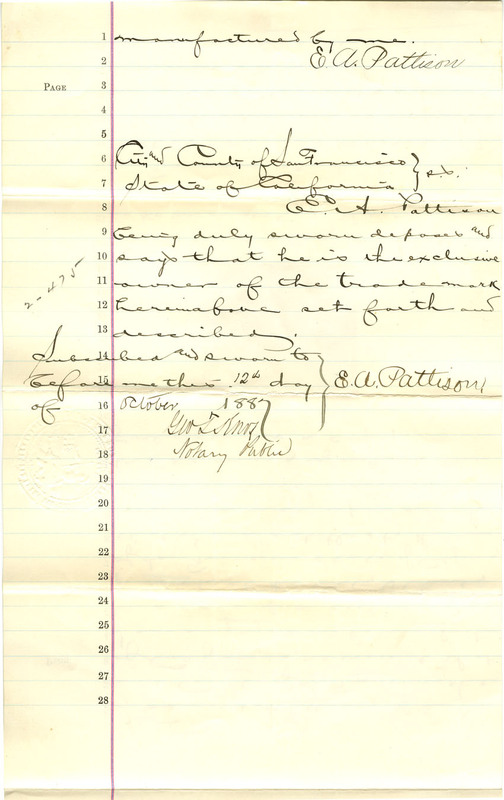 1 manufactured by me.
2 E. A. Pattison
PAGE 3
4
5
6 City and County of San Francisco } s.s.
7 State of California
8 E. A. Pattison
9 being duly sworn deposes and
10 says that he is the exclusive
11 owner of the trade mark
12 hereinabove set forth and
13 described.
2-475
14 Subscribed and sworn to
15 before me this 12th day } E. A. Pattison
16 of October 1887
17 Geo T. Knox
18 Notary Public
19
20
21
22
23
24
25
26
27
28